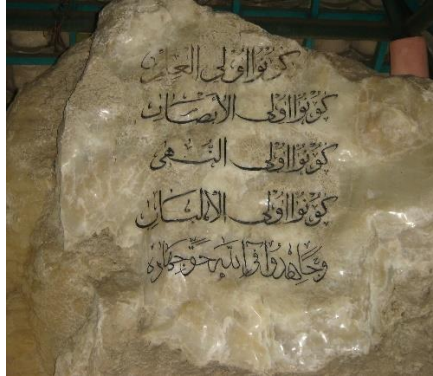 كونوا اولى العلم
كُوْنُوْا اُولِى الْاَبْصَار
كُوْنُوْا اُولِى النُّهٰى
كُوْنُوْا اُولِى الْاَلْبَاب
وَجَاهِدُوْا فِى اللهِ حَقَّ جِهَادِهِ